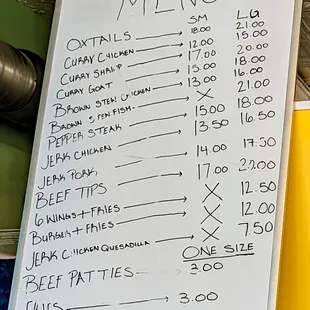 MENU
SM LG
OXTAILS 18.00 21.00
CURRY CHICKEN 12.00 15.00
CURRY SHRIMP 17.00 20.00
CURRY GOAT 15.00 18.00
BROWN STEW CHICKEN 13.00 16.00
BROWN STEW FISH X 21.00
PEPPER STEAK 15.00 18.00
JERK CHICKEN 13.50 16.50
JERK PORK 14.00 17.50
BEEF TIPS 17.00 22.00
6 WINGS + FRIES X 12.50
BURGER + FRIES X 12.00
JERK CHICKEN QUESADILLA X 7.50
ONE SIZE
BEEF PATTIES 3.00
3.00